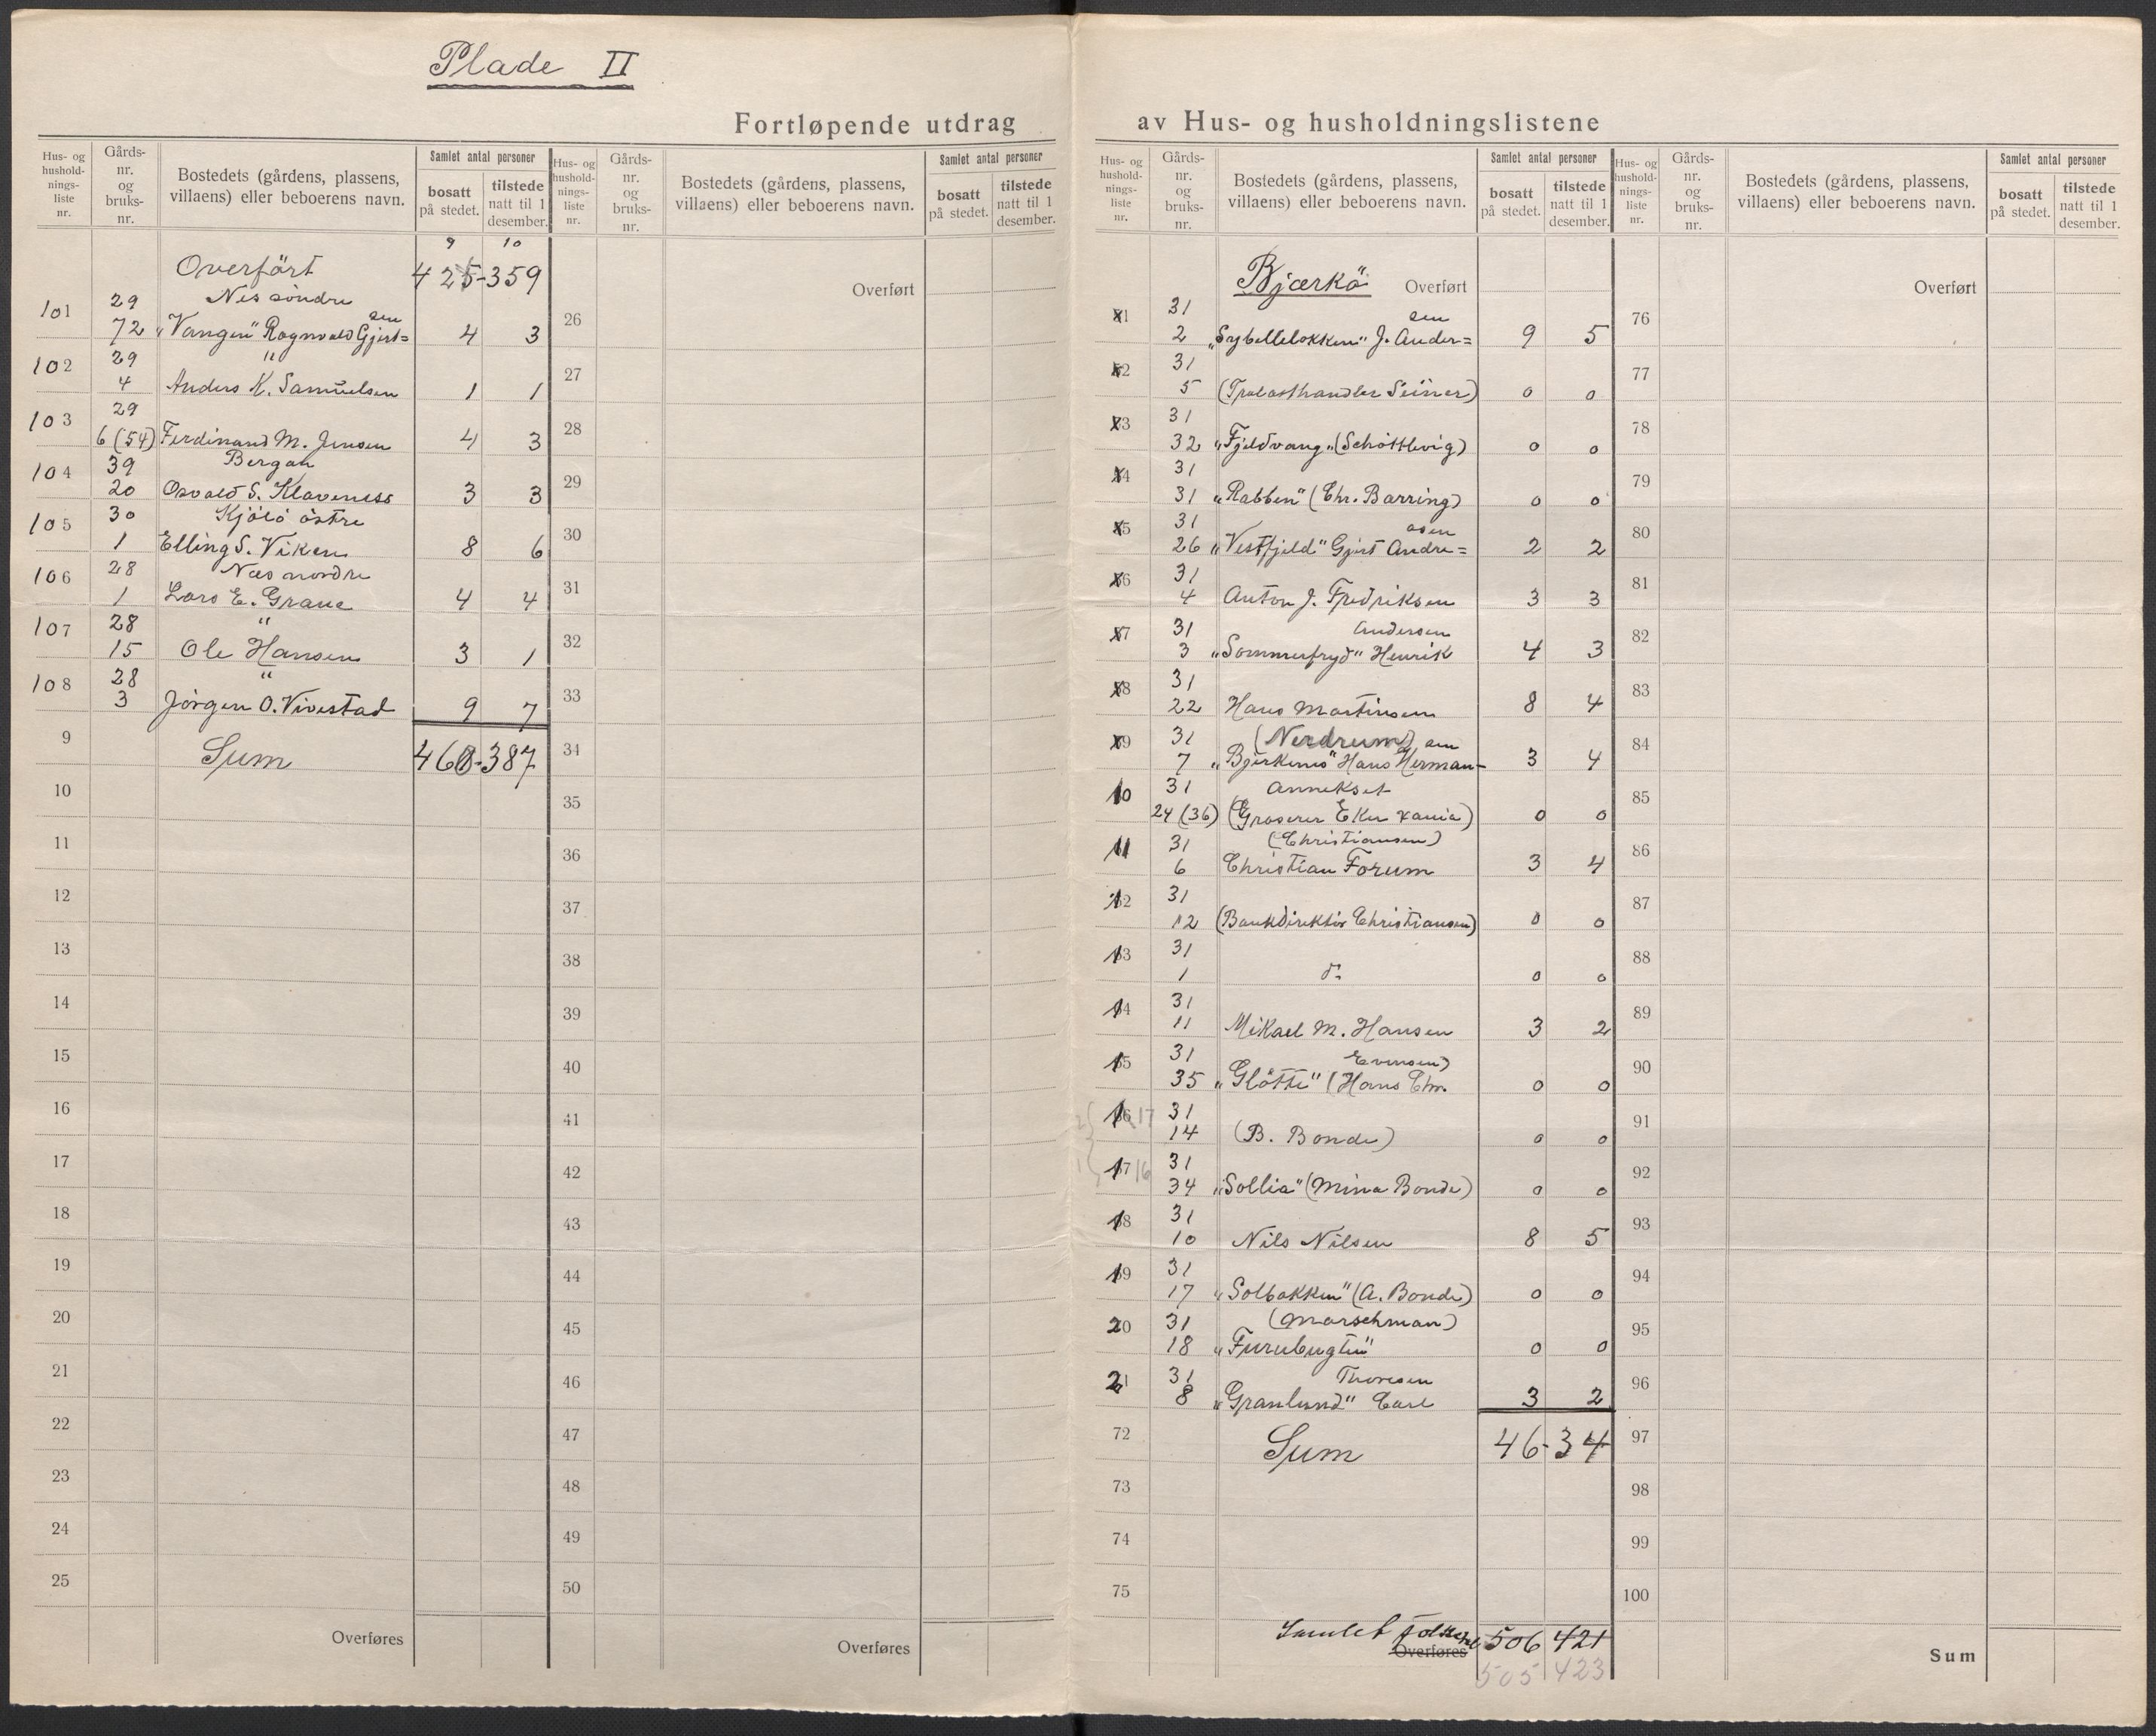 Plade II
Fortløpende utdrag av Hus- og husholdningslistene
Hus- og hushold-nings-liste nr. Gårds-nr. og bruks-nr. Bostedets (gårdens, plassens, villaens) eller beboerens navn. Samlet antal personer bosatt på stedet. tilstede natt til 1 desember.
Hus- og hushold-nings-liste nr. Gårds-nr. og bruks-nr. Bostedets (gårdens, plassens, villaens) eller beboerens navn. Samlet antal personer bosatt på stedet. tilstede natt til 1 desember.
9 10
Overført 425-359
Nes söndre
101 29 72 „Vangen" Ragnvald Gjert=sen 4 3
102 29 4 " Anders K. Samuelsen 1 1
103 29 6 (54) Ferdinand M. Jensen 4 3
Bergan
104 39 20 Osvald S. Klaveness 3 3
Kjölö östre
105 30 1 Elling S. Viken 8 6
Næs nordre
106 28 1 Lars E. Grane 4 4
107 28 15 " Ole Hansen 3 1
108 28 3 " Jörgen O. Vivestad 9 7
9 Sum 460-387
10
11
12
13
14
15
16
17
18
19
20
21
22
23
24
25
Overføres
Overført
26
27
28
29
30
31
32
33
34
35
36
37
38
39
40
41
42
43
44
45
46
47
48
49
50
Overføres
Hus- og hushold-nings-liste nr. Gårds-nr. og bruks-nr. Bostedets (gårdens, plassens, villaens) eller beboerens navn. Samlet antal personer bosatt på stedet. tilstede natt til 1 desember.
Hus- og hushold-nings-liste nr. Gårds-nr. og bruks-nr. Bostedets (gårdens, plassens, villaens) eller beboerens navn. Samlet antal personer bosatt på stedet. tilstede natt til 1 desember.
Bjærkö Overført
1 31 2 „Sybellelökken" J. Ander=sen 9 5
2 31 5 (Trælasthandler Seiner) 0 0
3 31 32 „Fjeldvang" (Schöttlevig) 0 0
4 31 31 „Rabben" (Chr. Barring) 0 0
5 31 26 „Vestfjeld" Gjert Andre=asen 2 2
6 31 4 Anton J. Fredriksen 3 3
7 31 3 „Sommerfryd" Henrik Andersen 4 3
8 31 22 Hans Martinsen 8 4
(Nerdrum)
9 31 7 „Bjerkenes" Hans Herman-sen 3 4
Annekset
10 31 24 (36) (Grosserer Eker Xania) 0 0
(Christiansen)
11 31 6 Christian Forum 3 4
12 31 12 (Bankdirektör Christiansen) 0 0
13 31 1 do 0 0
14 31 11 Mikael M. Hansen 3 2
15 31 35 „Glötte" (Hans Chr. Evensen) 0 0
16 17 31 14 (B. Bonde) 0 0
17 16 31 34 „Sollia" (Mina Bonde) 0 0
18 31 10 Nils Nilsen 8 5
19 31 17 „Solbakken" (A. Bonde) 0 0
(Marschman)
20 31 18 „Furubugten" 0 0
21 31 8 „Granlund" Carl Thoresen 3 2
72 Sum 46-34
73
74
75
Samlet folketal Overføres 506 421
505 423
Overført
76
77
78
79
80
81
82
83
84
85
86
87
88
89
90
91
92
93
94
95
96
97
98
99
100
Sum